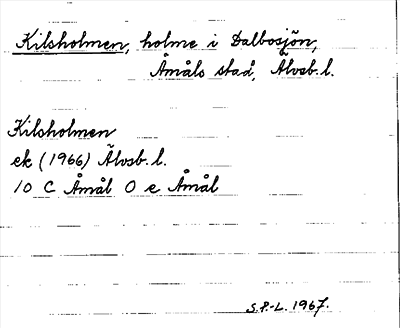 Kilsholmen, holme i Dalbosjön,
Åmåls stad, Älvsb. l.
Kilsholmen
ek (1966) Älvsb. l.
10 C Åmål 0 e Åmål
S.P.-L. 1967.